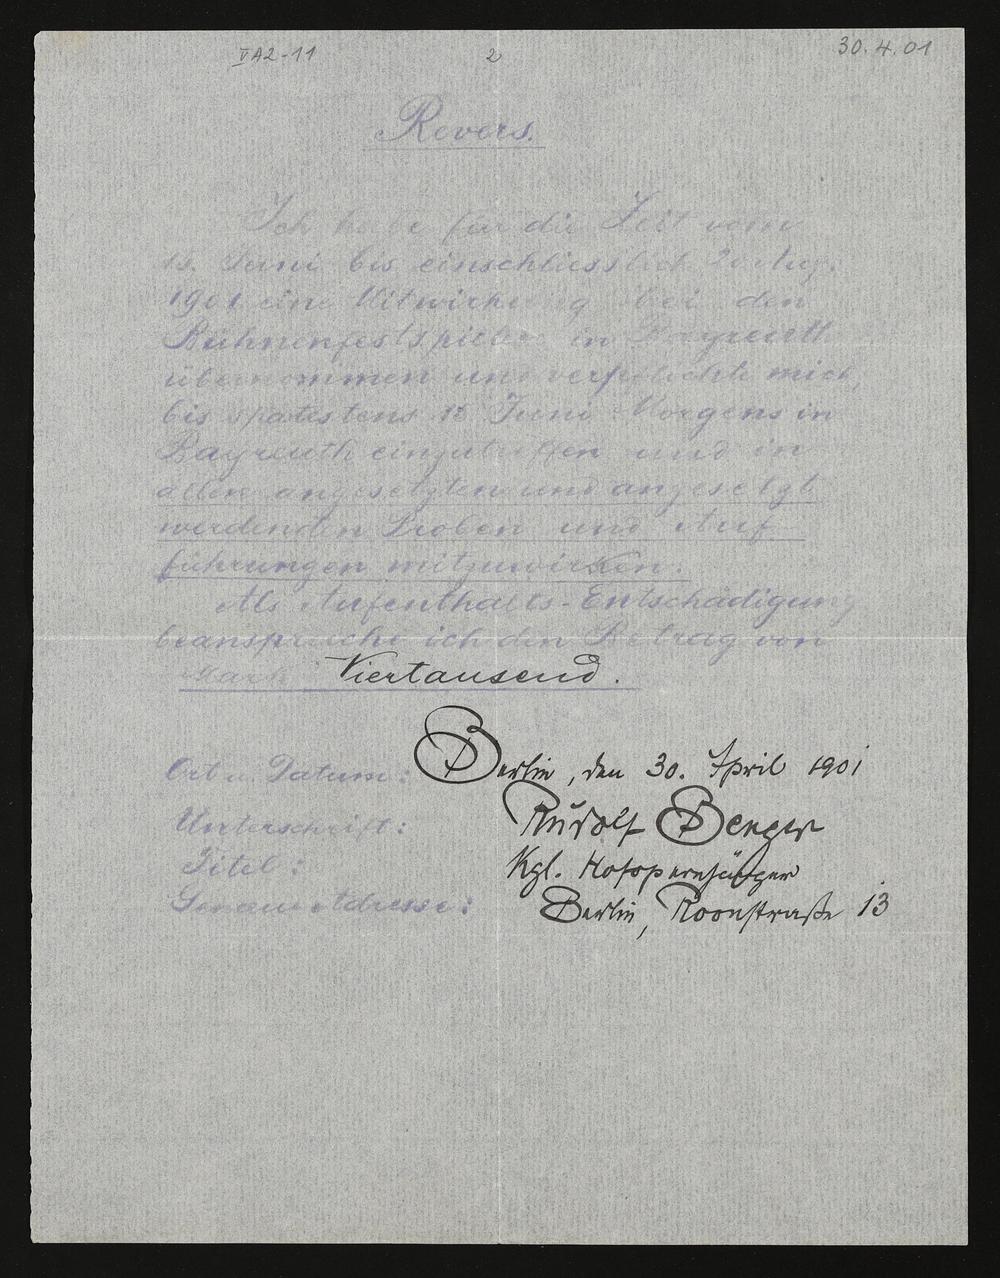 VA2-11 2 30.4.01
Revers.
Ich habe für die Zeit vom
15. Juni bis einschliesslich 20 Aug.
1901 eine Mitwirkung bei den
Bühnenfestspielen in Bayreuth
übernommen und verpflichte mich,
bis spätestens 15 Juni Morgens in
Bayreuth einzutreffen und in
allen angesetzten und angesetzt
werdenden Proben und Auf
führungen mitzuwirken.
Als Aufenthalts-Entschädigung
beanspruche ich den Betrag von
Mark Viertausend.
Ort u. Datum: Berlin, den 30. April 1901
Unterschrift: Rudolf Berger
Titel: Kgl. Hofopernsänger
Genaue Adresse: Berlin, Roonstraße 13